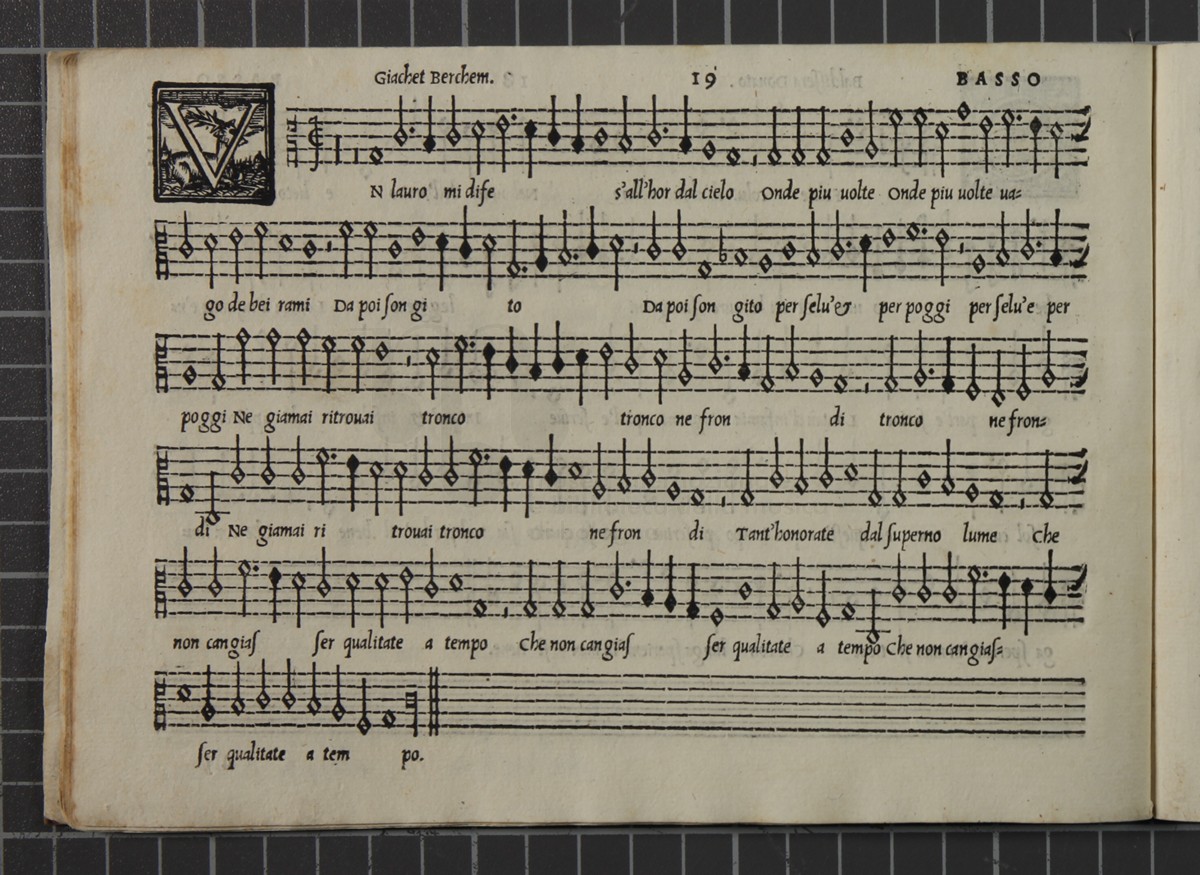 Giachet Berchem. 19 BASSO
VN lauro mi dife s'all'hor dal cielo Onde piu uolte Onde piu uolte ua=
go de bei rami Da poi ſon gi to Da poi ſon gito per ſelu'e & per poggi per ſelu'e per
poggi Ne giamai ritrouai tronco tronco ne fron di tronco ne fron=
di Ne giamai ri trouai tronco ne fron di Tant'honorate dal ſuperno lume Che
non cangiaſ ſer qualitate a tempo Che non cangiaſ ſer qualitate a tempo Che non cangiaſ=
ſer qualitate a tem po.